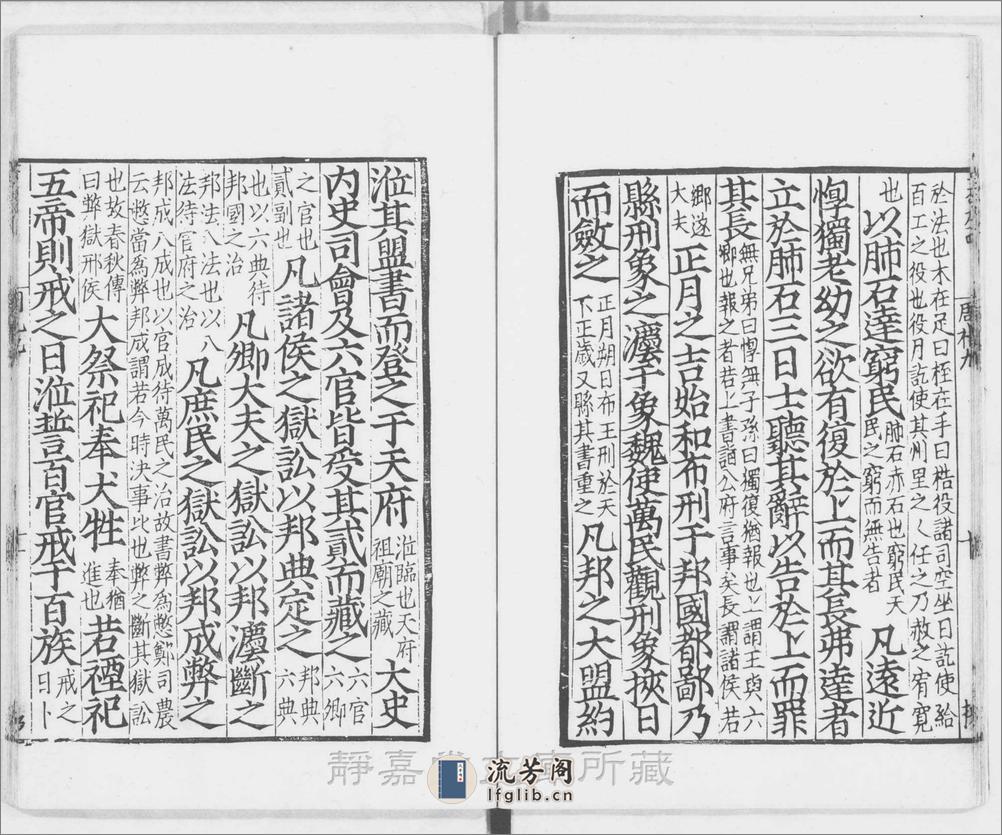 於法也木在足曰桎在手曰梏役諸司空坐日訖使給
百工之役也役月訖使其州里之人任之乃赦之宥寬
也以肺石達窮民肺石赤石也窮民天民之窮而無告者凡遠近
惸獨老幼之欲有復於上而其長弗達者
立於肺石三日士聽其辭以告於上而罪
其長無兄弟曰惸無子孫曰獨復猶報也上謂王與六卿也報之者若上書詣公府言事矣長謂諸侯若
鄉遂大夫正月之吉始和布刑于邦國都鄙乃
縣刑象之灋于象魏使萬民觀刑象挾日
而斂之正月朔日布王刑於天下正歲又縣其書重之凡邦之大盟約
涖其盟書而登之于天府涖臨也天府祖廟之藏大史
内史司會及六官皆受其貳而藏之六官六卿
之官也貳副也凡諸侯之獄訟以邦典定之邦典六典
也以六典待邦國之治凡卿大夫之獄訟以邦灋斷之
邦法八法也以八法待官府之治凡庶民之獄訟以邦成弊之
邦成八成也以官成待萬民之治故書弊為憋鄭司農
云憋當為弊邦成謂若今時決事比也弊之斷其獄訟
也故春秋傳曰弊獄邢侯大祭祀奉犬牲奉猶進也若禋祀
五帝則戒之日涖誓百官戒于百族戒之日卜
靜嘉堂文庫所藏
流芳阁
lfglib.cn